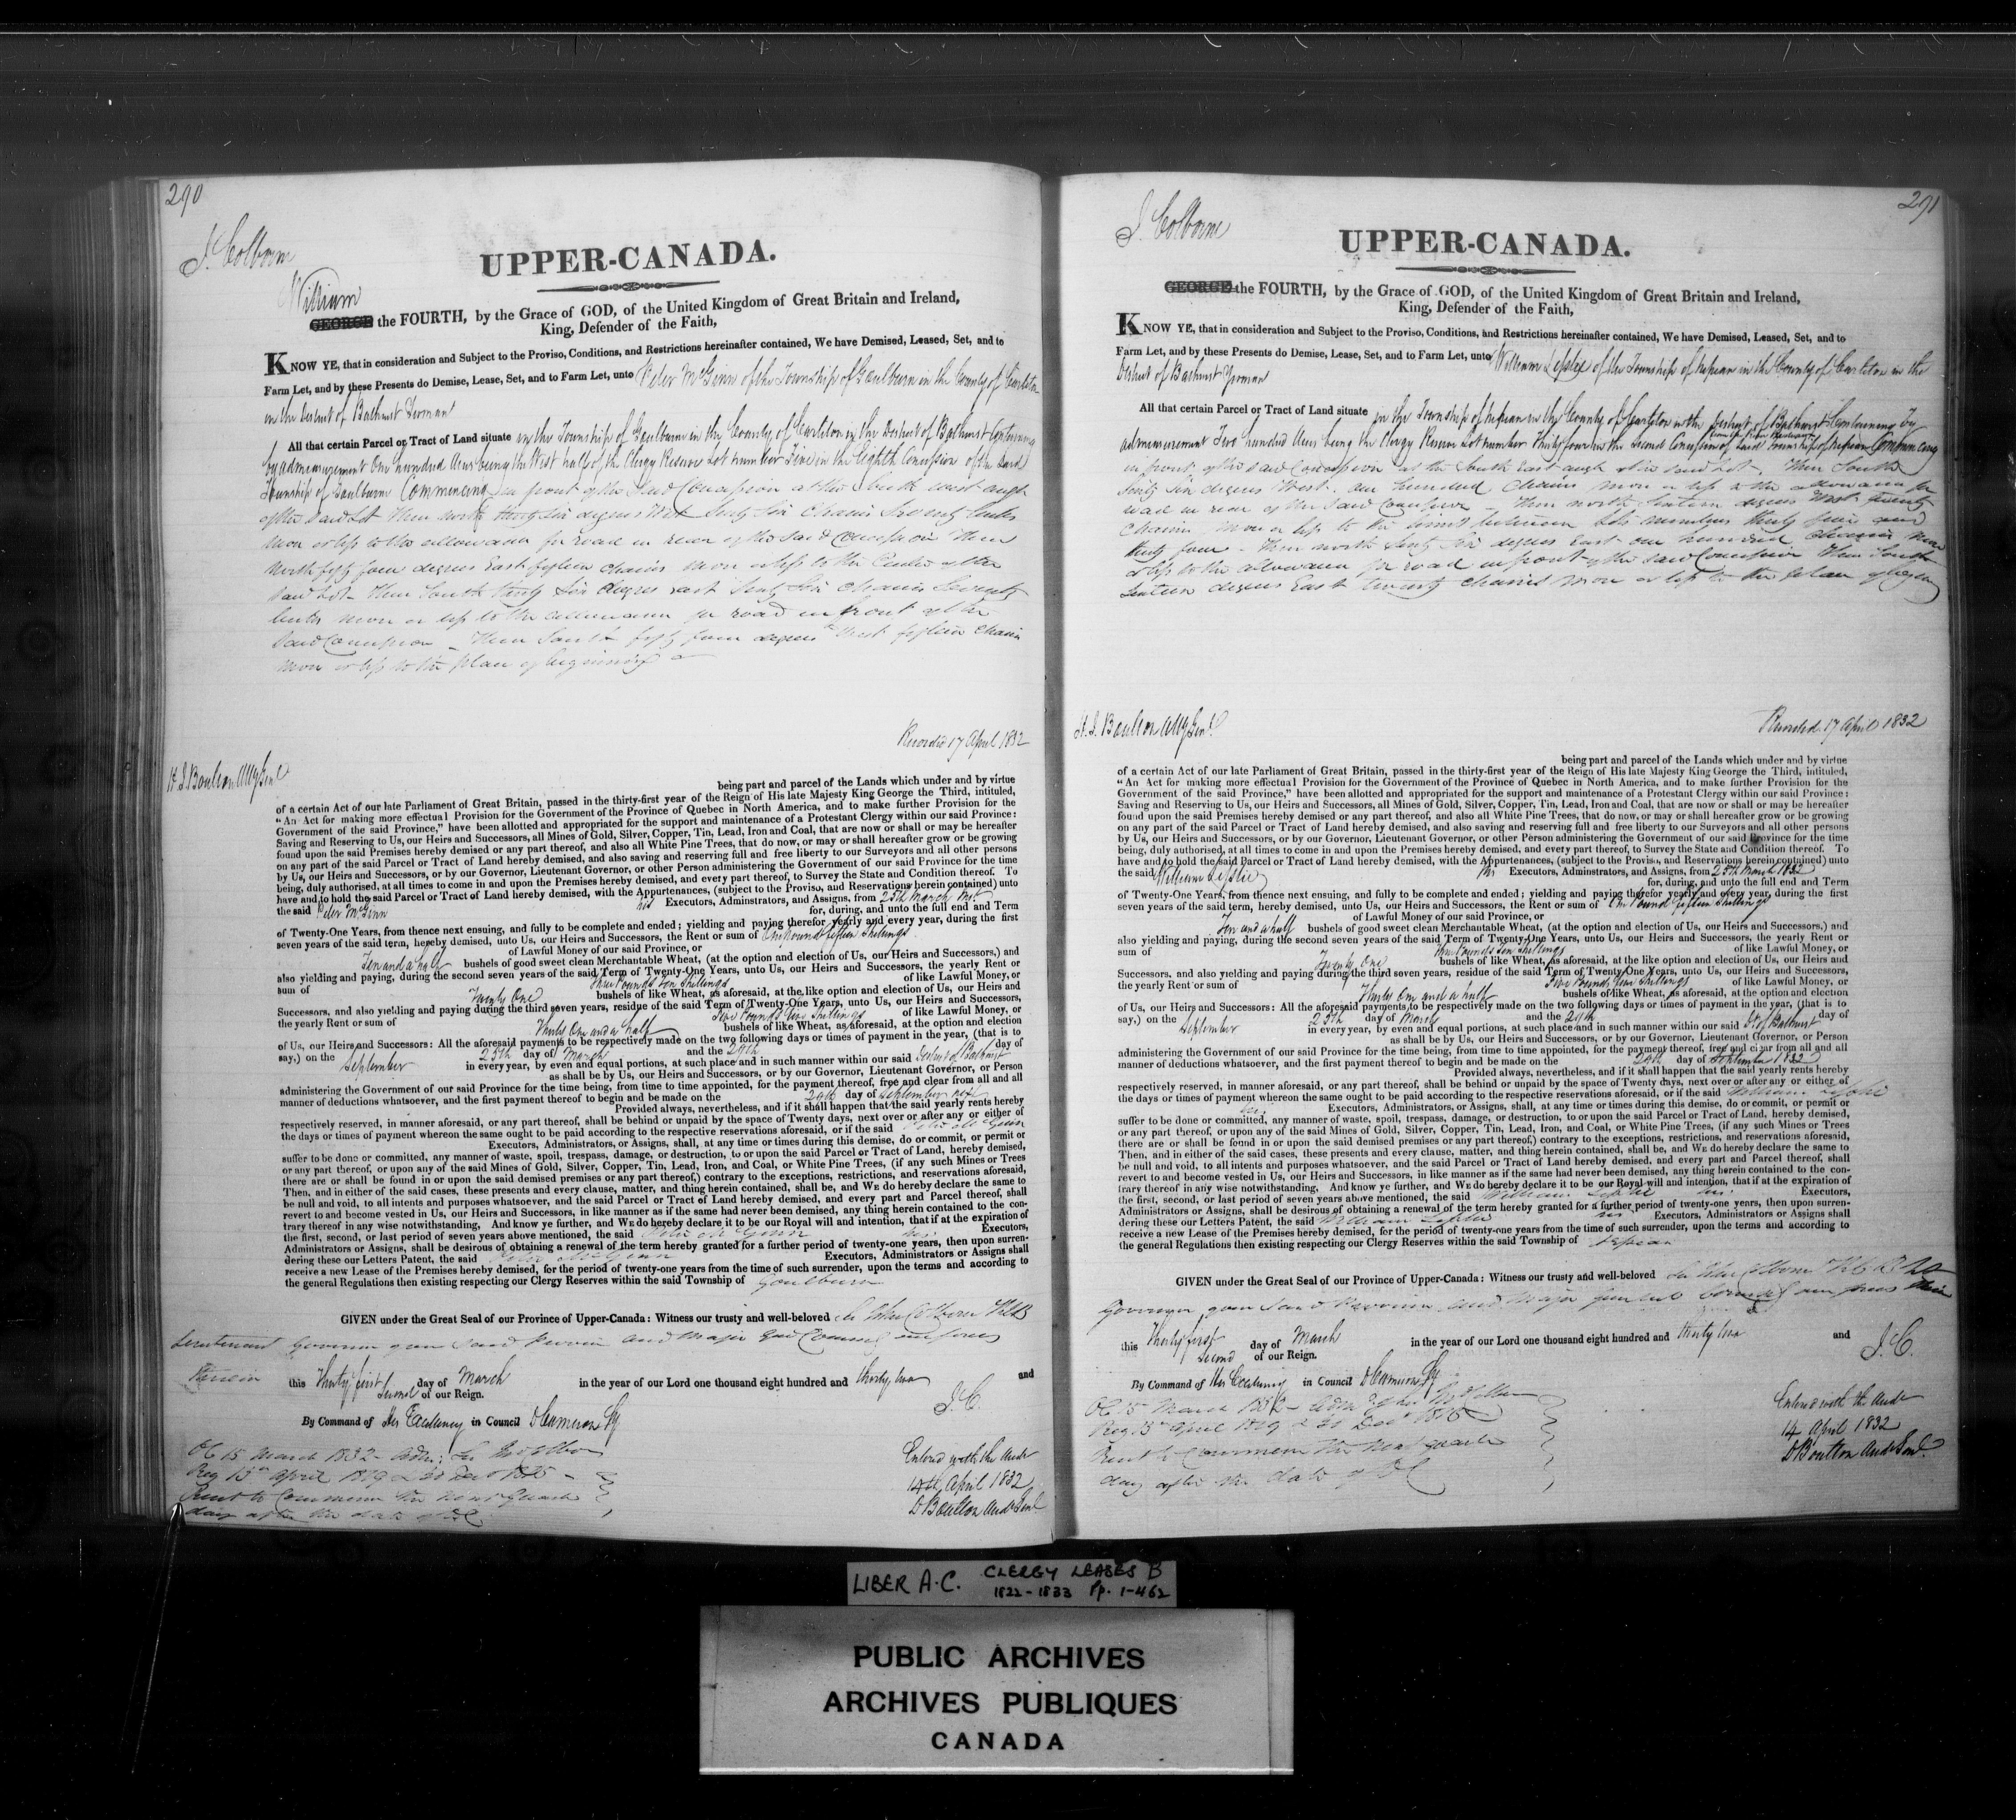 290
J. Colborne
UPPER-CANADA.
William
GEORGE the FOURTH, by the Grace of GOD, of the United Kingdom of Great Britain and Ireland,
King, Defender of the Faith,
KNOW YE, that in consideration and Subject to the Proviso, Conditions, and Restrictions hereinafter contained, We have Demised, Leased, Set, and to
Farm Let, and by these Presents do Demise, Lease, Set, and to Farm Let, unto Peter McGinn of the Township of Goulburn in the County of Carleton
in the District of Bathurst Yeoman
All that certain Parcel or Tract of Land situate in the Township of Goulburn in the County of Carleton in the District of Bathurst Containing
by admeasurement One hundred Acres being the West half of the Clergy Reserve Lot number Five in the Eighth Concession of the said
Township of Goulburn Commencing in front of the said Concession at the South west angle
of the said Lot Then north thirty six degrees West Sixty Six Chains Seventy links
more or less to the allowance for road in rear of the said Concession Then
North fifty four degrees East fifteen chains more or less to the Centre of the
said Lot - Then South thirty Six degrees east Sixty Six chains Seventy
links more or less to the allowance for road in front of the
said Concession - Then South fifty four degrees West fifteen Chains
more or less to the place of beginning
Recorded 17 April 1832
H. J. Boulton Atty Genl
being part and parcel of the Lands which under and by virtue
of a certain Act of our late Parliament of Great Britain, passed in the thirty-first year of the Reign of His late Majesty King George the Third, intituled,
"An Act for making more effectual Provision for the Government of the Province of Quebec in North America, and to make further Provision for the
Government of the said Province," have been allotted and appropriated for the support and maintenance of a Protestant Clergy within our said Province:
Saving and Reserving to Us, our Heirs and Successors, all Mines of Gold, Silver, Copper, Tin, Lead, Iron and Coal, that are now or shall or may be hereafter
found upon the said Premises hereby demised or any part thereof, and also all White Pine Trees, that do now, or may or shall hereafter grow or be growing
on any part of the said Parcel or Tract of Land hereby demised, and also saving and reserving full and free liberty to our Surveyors and all other persons
by Us, our Heirs and Successors, or by our Governor, Lieutenant Governor, or other Person administering the Government of our said Province for the time
being, duly authorised, at all times to come in and upon the Premises hereby demised, and every part thereof, to Survey the State and Condition thereof. To
have and to hold the said Parcel or Tract of Land hereby demised, with the Appurtenances, (subject to the Proviso, and Reservations herein contained) unto
the said Peter McGinn his Executors, Adminstrators, and Assigns, from 25th March Inst.
for, during, and unto the full end and Term
of Twenty-One Years, from thence next ensuing, and fully to be complete and ended; yielding and paying therefor yearly and every year, during the first
seven years of the said term, hereby demised, unto Us, our Heirs and Successors, the Rent or sum of One Pound fifteen Shillings
of Lawful Money of our said Province, or
Ten and a half bushels of good sweet clean Merchantable Wheat, (at the option and election of Us, our Heirs and Successors,) and
also yielding and paying, during the second seven years of the said Term of Twenty-One Years, unto Us, our Heirs and Successors, the yearly Rent or
sum of Three Pounds Ten Shillings of like Lawful Money, or
Twenty One bushels of like Wheat, as aforesaid, at the like option and election of Us, our Heirs and
Successors, and also yielding and paying during the third seven years, residue of the said Term of Twenty-One Years, unto Us, our Heirs and Successors,
the yearly Rent or sum of Five Pounds five Shillings of like Lawful Money, or
Thirty One and a half bushels of like Wheat, as aforesaid, at the option and election
of Us, our Heirs and Successors: All the aforesaid payments to be respectively made on the two following days or times of payment in the year, (that is to
say,) on the 25th day of March and the 29th day of
September in every year, by even and equal portions, at such place and in such manner within our said District of Bathurst
as shall be by Us, our Heirs and Successors, or by our Governor, Lieutenant Governor, or Person
administering the Government of our said Province for the time being, from time to time appointed, for the payment thereof, free and clear from all and all
manner of deductions whatsoever, and the first payment thereof to begin and be made on the 29th day of September next
Provided always, nevertheless, and if it shall happen that the said yearly rents hereby
respectively reserved, in manner aforesaid, or any part thereof, shall be behind or unpaid by the space of Twenty days, next over or after any or either of
the days or times of payment whereon the same ought to be paid according to the respective reservations aforesaid, or if the said Peter McGinn
Executors, Administrators, or Assigns, shall, at any time or times during this demise, do or commit, or permit or
suffer to be done or committed, any manner of waste, spoil, trespass, damage, or destruction, to or upon the said Parcel or Tract of Land, hereby demised,
or any part thereof, or upon any of the said Mines of Gold, Silver, Copper, Tin, Lead, Iron, and Coal, or White Pine Trees, (if any such Mines or Trees
there are or shall be found in or upon the said demised premises or any part thereof,) contrary to the exceptions, restrictions, and reservations aforesaid,
Then, and in either of the said cases, these presents and every clause, matter, and thing herein contained, shall be, and WE do hereby declare the same to
be null and void, to all intents and purposes whatsoever, and the said Parcel or Tract of Land hereby demised, and every part and Parcel thereof, shall
revert to and become vested in Us, our Heirs and Successors, in like manner as if the same had never been demised, any thing herein contained to the con-
trary thereof in any wise notwithstanding. And know ye further, and WE do hereby declare it to be our Royal will and intention, that if at the expiration of
the first, second, or last period of seven years above mentioned, the said Peter McGinn his Executors,
Administrators or Assigns, shall be desirous of obtaining a renewal of the term hereby granted for a further period of twenty-one years, then upon surren-
dering these our Letters Patent, the said Peter McGinn Executors, Administrators or Assigns shall
receive a new Lease of the Premises hereby demised, for the period of twenty-one years from the time of such surrender, upon the terms and according to
the general Regulations then existing respecting our Clergy Reserves within the said Township of Goulburn
GIVEN under the Great Seal of our Province of Upper-Canada: Witness our trusty and well-beloved Sir John Colborne KCB
Lieutenant Governor of our said Province and Major Genl Commg our forces
therein this Thirty first day of March in the year of our Lord one thousand eight hundred and thirty two and
Second of our Reign.
J.C.
By Command of His Excellency in Council D Cameron Sy
OC 15 March 1832 - Adm: Sir Jno Colborne
Reg 13th April 1819 & 30 Dec 1815 -
Rent to Commence the next Quarter
day after the date of OC
Entered with the Audr
14th April 1832
D Boulton Aud Genl
291
J. Colborne
UPPER-CANADA.
GEORGE the FOURTH, by the Grace of GOD, of the United Kingdom of Great Britain and Ireland,
King, Defender of the Faith,
KNOW YE, that in consideration and Subject to the Proviso, Conditions, and Restrictions hereinafter contained, We have Demised, Leased, Set, and to
Farm Let, and by these Presents do Demise, Lease, Set, and to Farm Let, unto William Leslie of the Township of Nepean in the County of Carleton in the
District of Bathurst Yeoman
All that certain Parcel or Tract of Land situate in the Township of Nepean in the County of Carleton in the District of Bathurst Containing by
admeasurement Two hundred Acres being the Clergy Reserve Lot number Thirty four in the Second Concession of said Township of Nepean Commencing
in front of the said Concession at the South East angle of the said Lot - Then South
Sixty Six degrees West one hundred chains more or less to the allowance for
road in rear of the said Concession - Then north Sixteen degrees West twenty
Chains more or less to the limit between Lots numbers thirty five and
thirty four - Then north Sixty Six degrees East one hundred Chains more
or less to the allowance for road in front of the said Concession Then South
Sixteen degrees East twenty chains more or less to the place of beginning
Recorded 17 April 1832
H. J. Boulton Atty Genl
being part and parcel of the Lands which under and by virtue
of a certain Act of our late Parliament of Great Britain, passed in the thirty-first year of the Reign of His late Majesty King George the Third, intituled,
"An Act for making more effectual Provision for the Government of the Province of Quebec in North America, and to make further Provision for the
Government of the said Province," have been allotted and appropriated for the support and maintenance of a Protestant Clergy within our said Province:
Saving and Reserving to Us, our Heirs and Successors, all Mines of Gold, Silver, Copper, Tin, Lead, Iron and Coal, that are now or shall or may be hereafter
found upon the said Premises hereby demised or any part thereof, and also all White Pine Trees, that do now, or may or shall hereafter grow or be growing
on any part of the said Parcel or Tract of Land hereby demised, and also saving and reserving full and free liberty to our Surveyors and all other persons
by Us, our Heirs and Successors, or by our Governor, Lieutenant Governor, or other Person administering the Government of our said Province for the time
being, duly authorised, at all times to come in and upon the Premises hereby demised, and every part thereof, to Survey the State and Condition thereof. To
have and to hold the said Parcel or Tract of Land hereby demised, with the Appurtenances, (subject to the Proviso, and Reservations herein contained) unto
the said William Leslie his Executors, Adminstrators, and Assigns, from 25th March 1832
for, during, and unto the full end and Term
of Twenty-One Years, from thence next ensuing, and fully to be complete and ended; yielding and paying therefor yearly and every year, during the first
seven years of the said term, hereby demised, unto Us, our Heirs and Successors, the Rent or sum of One Pound fifteen Shillings
of Lawful Money of our said Province, or
Ten and a half bushels of good sweet clean Merchantable Wheat, (at the option and election of Us, our Heirs and Successors,) and
also yielding and paying, during the second seven years of the said Term of Twenty-One Years, unto Us, our Heirs and Successors, the yearly Rent or
sum of Three Pounds Ten Shillings of like Lawful Money, or
Twenty One bushels of like Wheat, as aforesaid, at the like option and election of Us, our Heirs and
Successors, and also yielding and paying during the third seven years, residue of the said Term of Twenty-One Years, unto Us, our Heirs and Successors,
the yearly Rent or sum of Five Pounds five Shillings of like Lawful Money, or
Thirty One and a half bushels of like Wheat, as aforesaid, at the option and election
of Us, our Heirs and Successors: All the aforesaid payments to be respectively made on the two following days or times of payment in the year, (that is to
say,) on the 25th day of March and the 29th day of
September in every year, by even and equal portions, at such place and in such manner within our said Dt. of Bathurst
as shall be by Us, our Heirs and Successors, or by our Governor, Lieutenant Governor, or Person
administering the Government of our said Province for the time being, from time to time appointed, for the payment thereof, free and clear from all and all
manner of deductions whatsoever, and the first payment thereof to begin and be made on the 29th day of September 1832
Provided always, nevertheless, and if it shall happen that the said yearly rents hereby
respectively reserved, in manner aforesaid, or any part thereof, shall be behind or unpaid by the space of Twenty days, next over or after any or either of
the days or times of payment whereon the same ought to be paid according to the respective reservations aforesaid, or if the said William Leslie
his Executors, Administrators, or Assigns, shall, at any time or times during this demise, do or commit, or permit or
suffer to be done or committed, any manner of waste, spoil, trespass, damage, or destruction, to or upon the said Parcel or Tract of Land, hereby demised,
or any part thereof, or upon any of the said Mines of Gold, Silver, Copper, Tin, Lead, Iron, and Coal, or White Pine Trees, (if any such Mines or Trees
there are or shall be found in or upon the said demised premises or any part thereof,) contrary to the exceptions, restrictions, and reservations aforesaid,
Then, and in either of the said cases, these presents and every clause, matter, and thing herein contained, shall be, and WE do hereby declare the same to
be null and void, to all intents and purposes whatsoever, and the said Parcel or Tract of Land hereby demised, and every part and Parcel thereof, shall
revert to and become vested in Us, our Heirs and Successors, in like manner as if the same had never been demised, any thing herein contained to the con-
trary thereof in any wise notwithstanding. And know ye further, and WE do hereby declare it to be our Royal will and intention, that if at the expiration of
the first, second, or last period of seven years above mentioned, the said William Leslie his Executors,
Administrators or Assigns, shall be desirous of obtaining a renewal of the term hereby granted for a further period of twenty-one years, then upon surren-
dering these our Letters Patent, the said William Leslie his Executors, Administrators or Assigns shall
receive a new Lease of the Premises hereby demised, for the period of twenty-one years from the time of such surrender, upon the terms and according to
the general Regulations then existing respecting our Clergy Reserves within the said Township of Nepean
GIVEN under the Great Seal of our Province of Upper-Canada: Witness our trusty and well-beloved Sir John Colborne K.C.B.
Governor of our said Province and Major General Commg our forces therein
this Thirty first day of March in the year of our Lord one thousand eight hundred and thirty two and
Second of our Reign.
J.C.
By Command of His Excellency in Council D Cameron Sy
OC 15 March 1832 -
Reg. 13th April 1819 & 30 Decr 1815
Rent to Commence the next quarter
day after the date of OC
Entered with the Audr
14 April 1832
D Boulton Aud Genl
LIBER A.C. CLERGY LEASES B
1822-1833 Pp. 1-462
PUBLIC ARCHIVES
ARCHIVES PUBLIQUES
CANADA